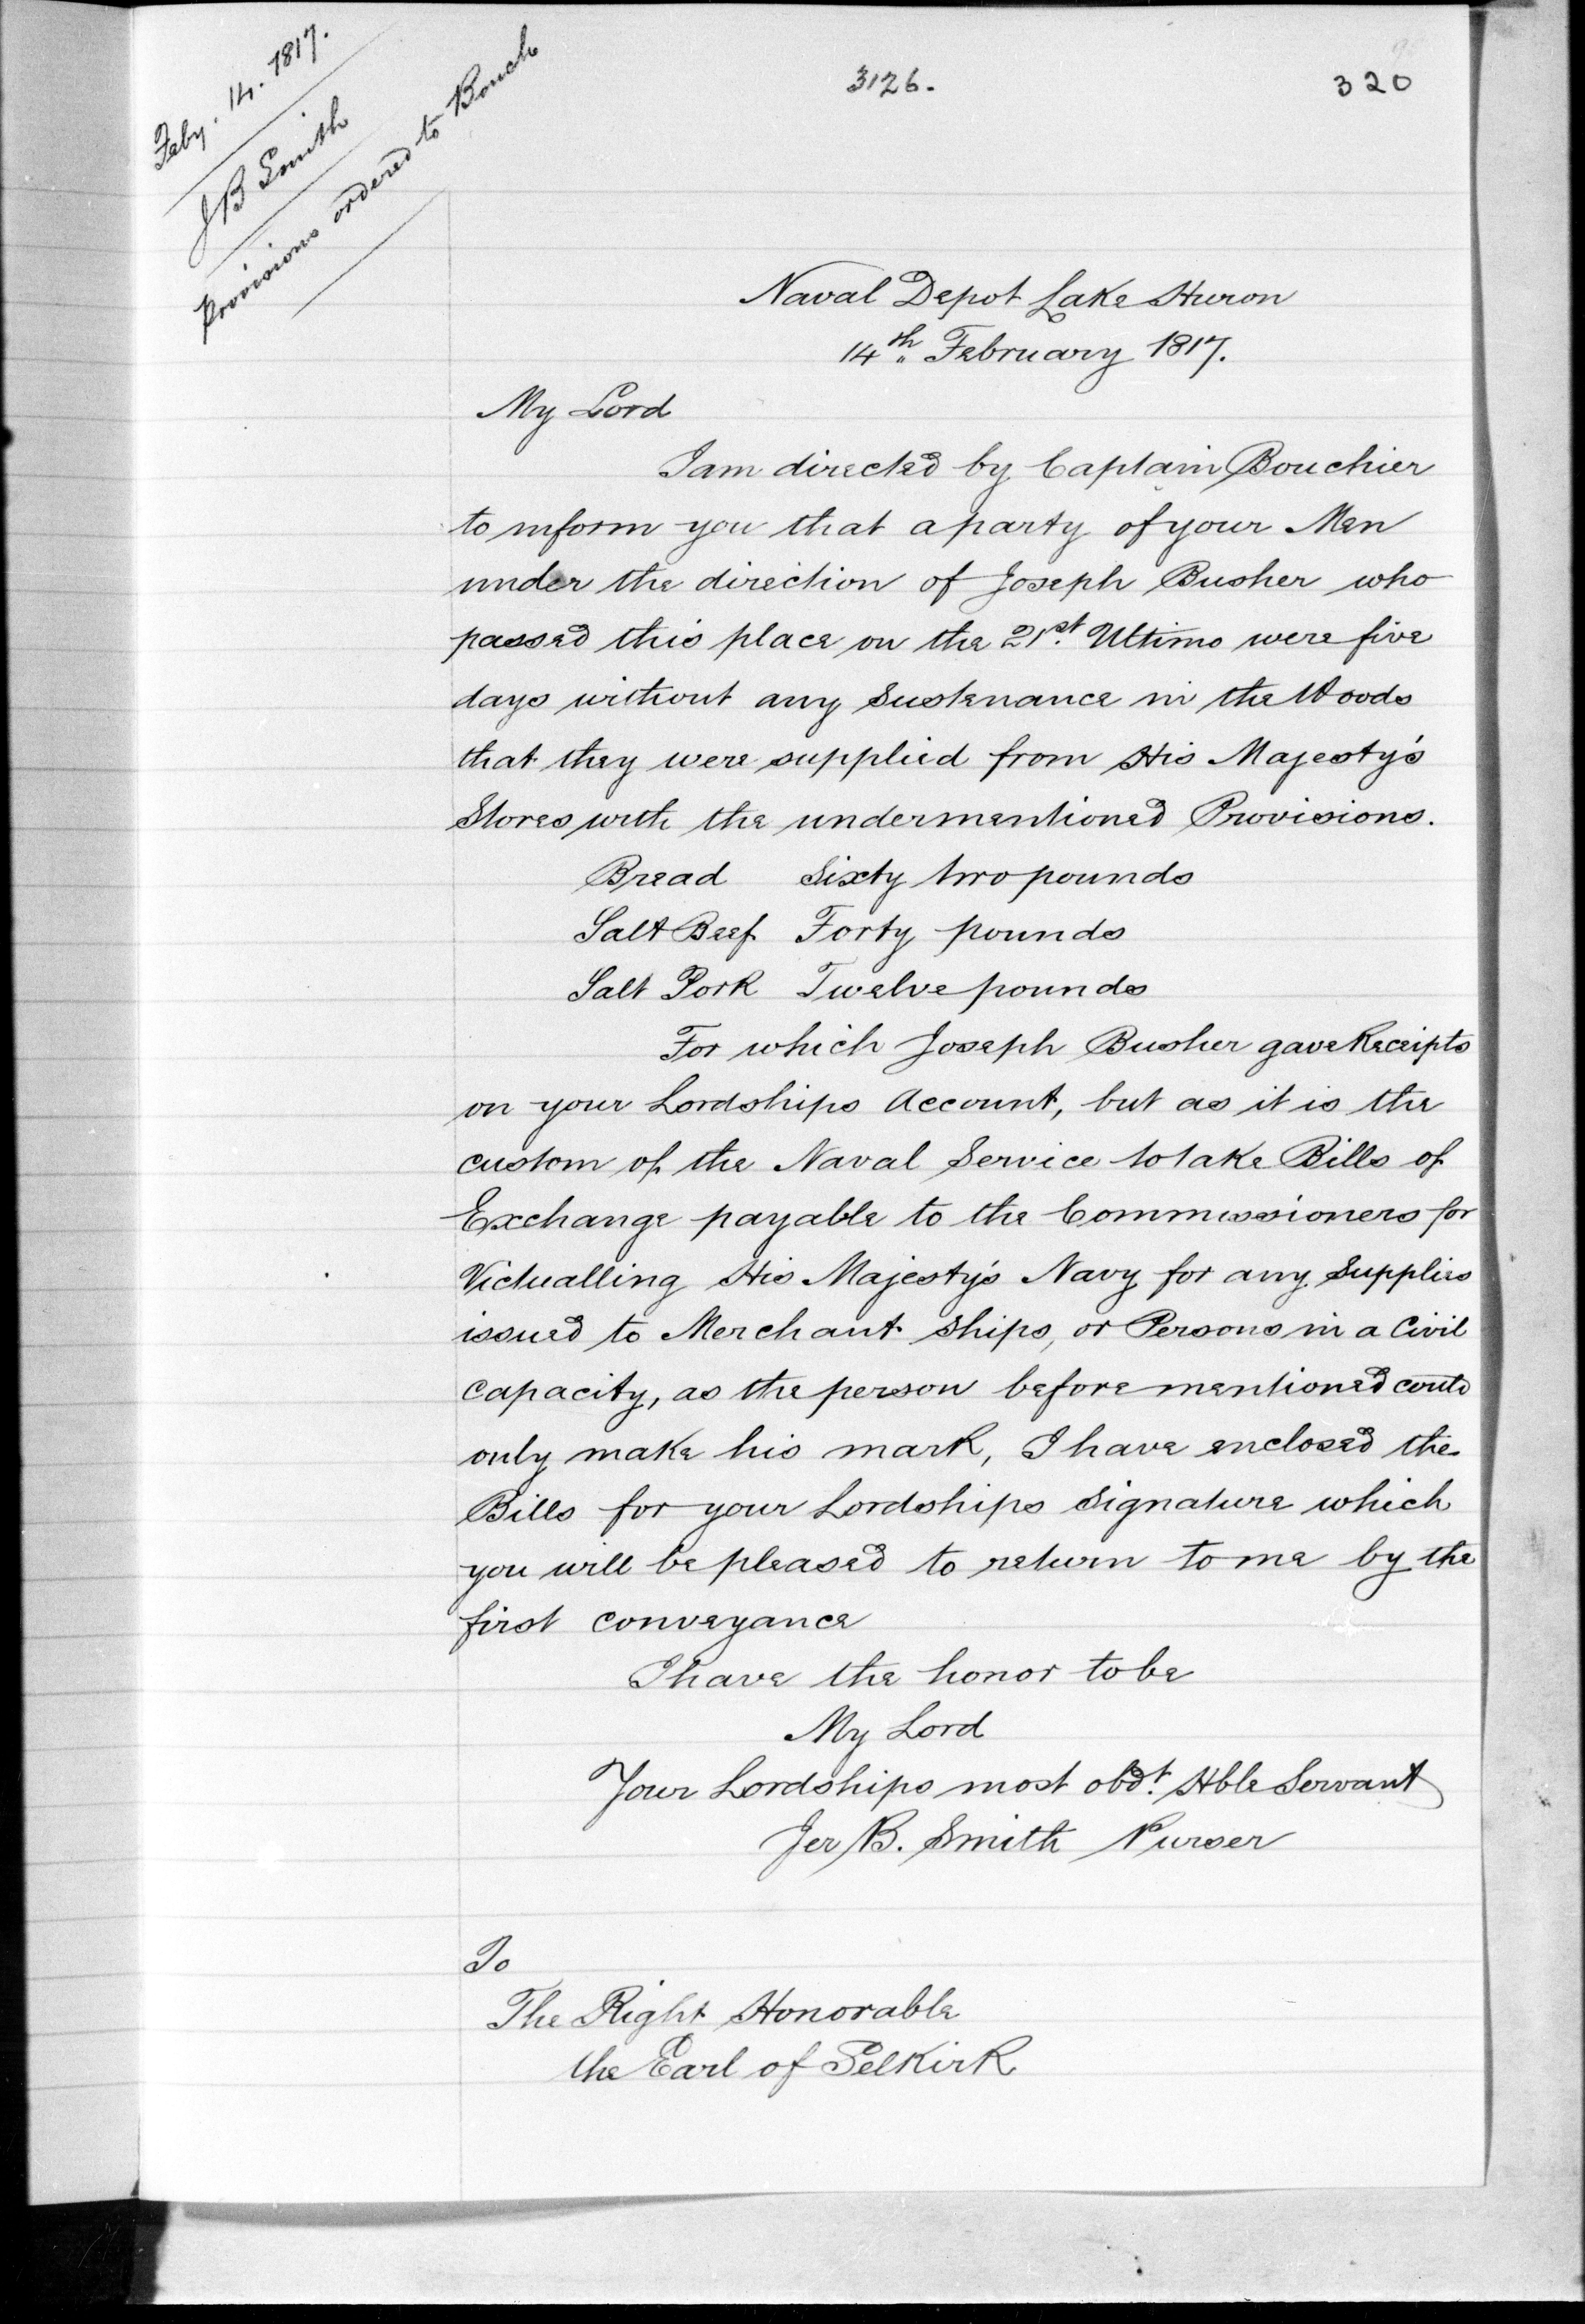 Feby. 14. 1817.
JB Smith
Provisions ordered to Bouch
3126.
320
Naval Depot Lake Huron
14th February 1817.
My Lord
I am directed by Captain Bouchier
to inform you that a party of your Men
under the direction of Joseph Busher who
passed this place on the 21st. Ultimo were five
days without any Sustenance in the Woods
that they were supplied from His Majesty's
Stores with the undermentioned Provisions.
Bread Sixty two pounds
Salt Beef Forty pounds
Salt Pork Twelve pounds
For which Joseph Busher gave Receipts
on your Lordships Account, but as it is the
custom of the Naval Service to take Bills of
Exchange payable to the Commissioners for
Victualling His Majesty's Navy for any Supplies
issued to Merchant Ships, or Persons in a Civil
capacity, as the person before mentioned could
only make his mark, I have enclosed the
Bills for your Lordships Signature which
you will be pleased to return to me by the
first conveyance
I have the honor to be
My Lord
Your Lordships most obdt. Hble Servant
Jer B. Smith Purser
To
The Right Honorable
the Earl of Selkirk